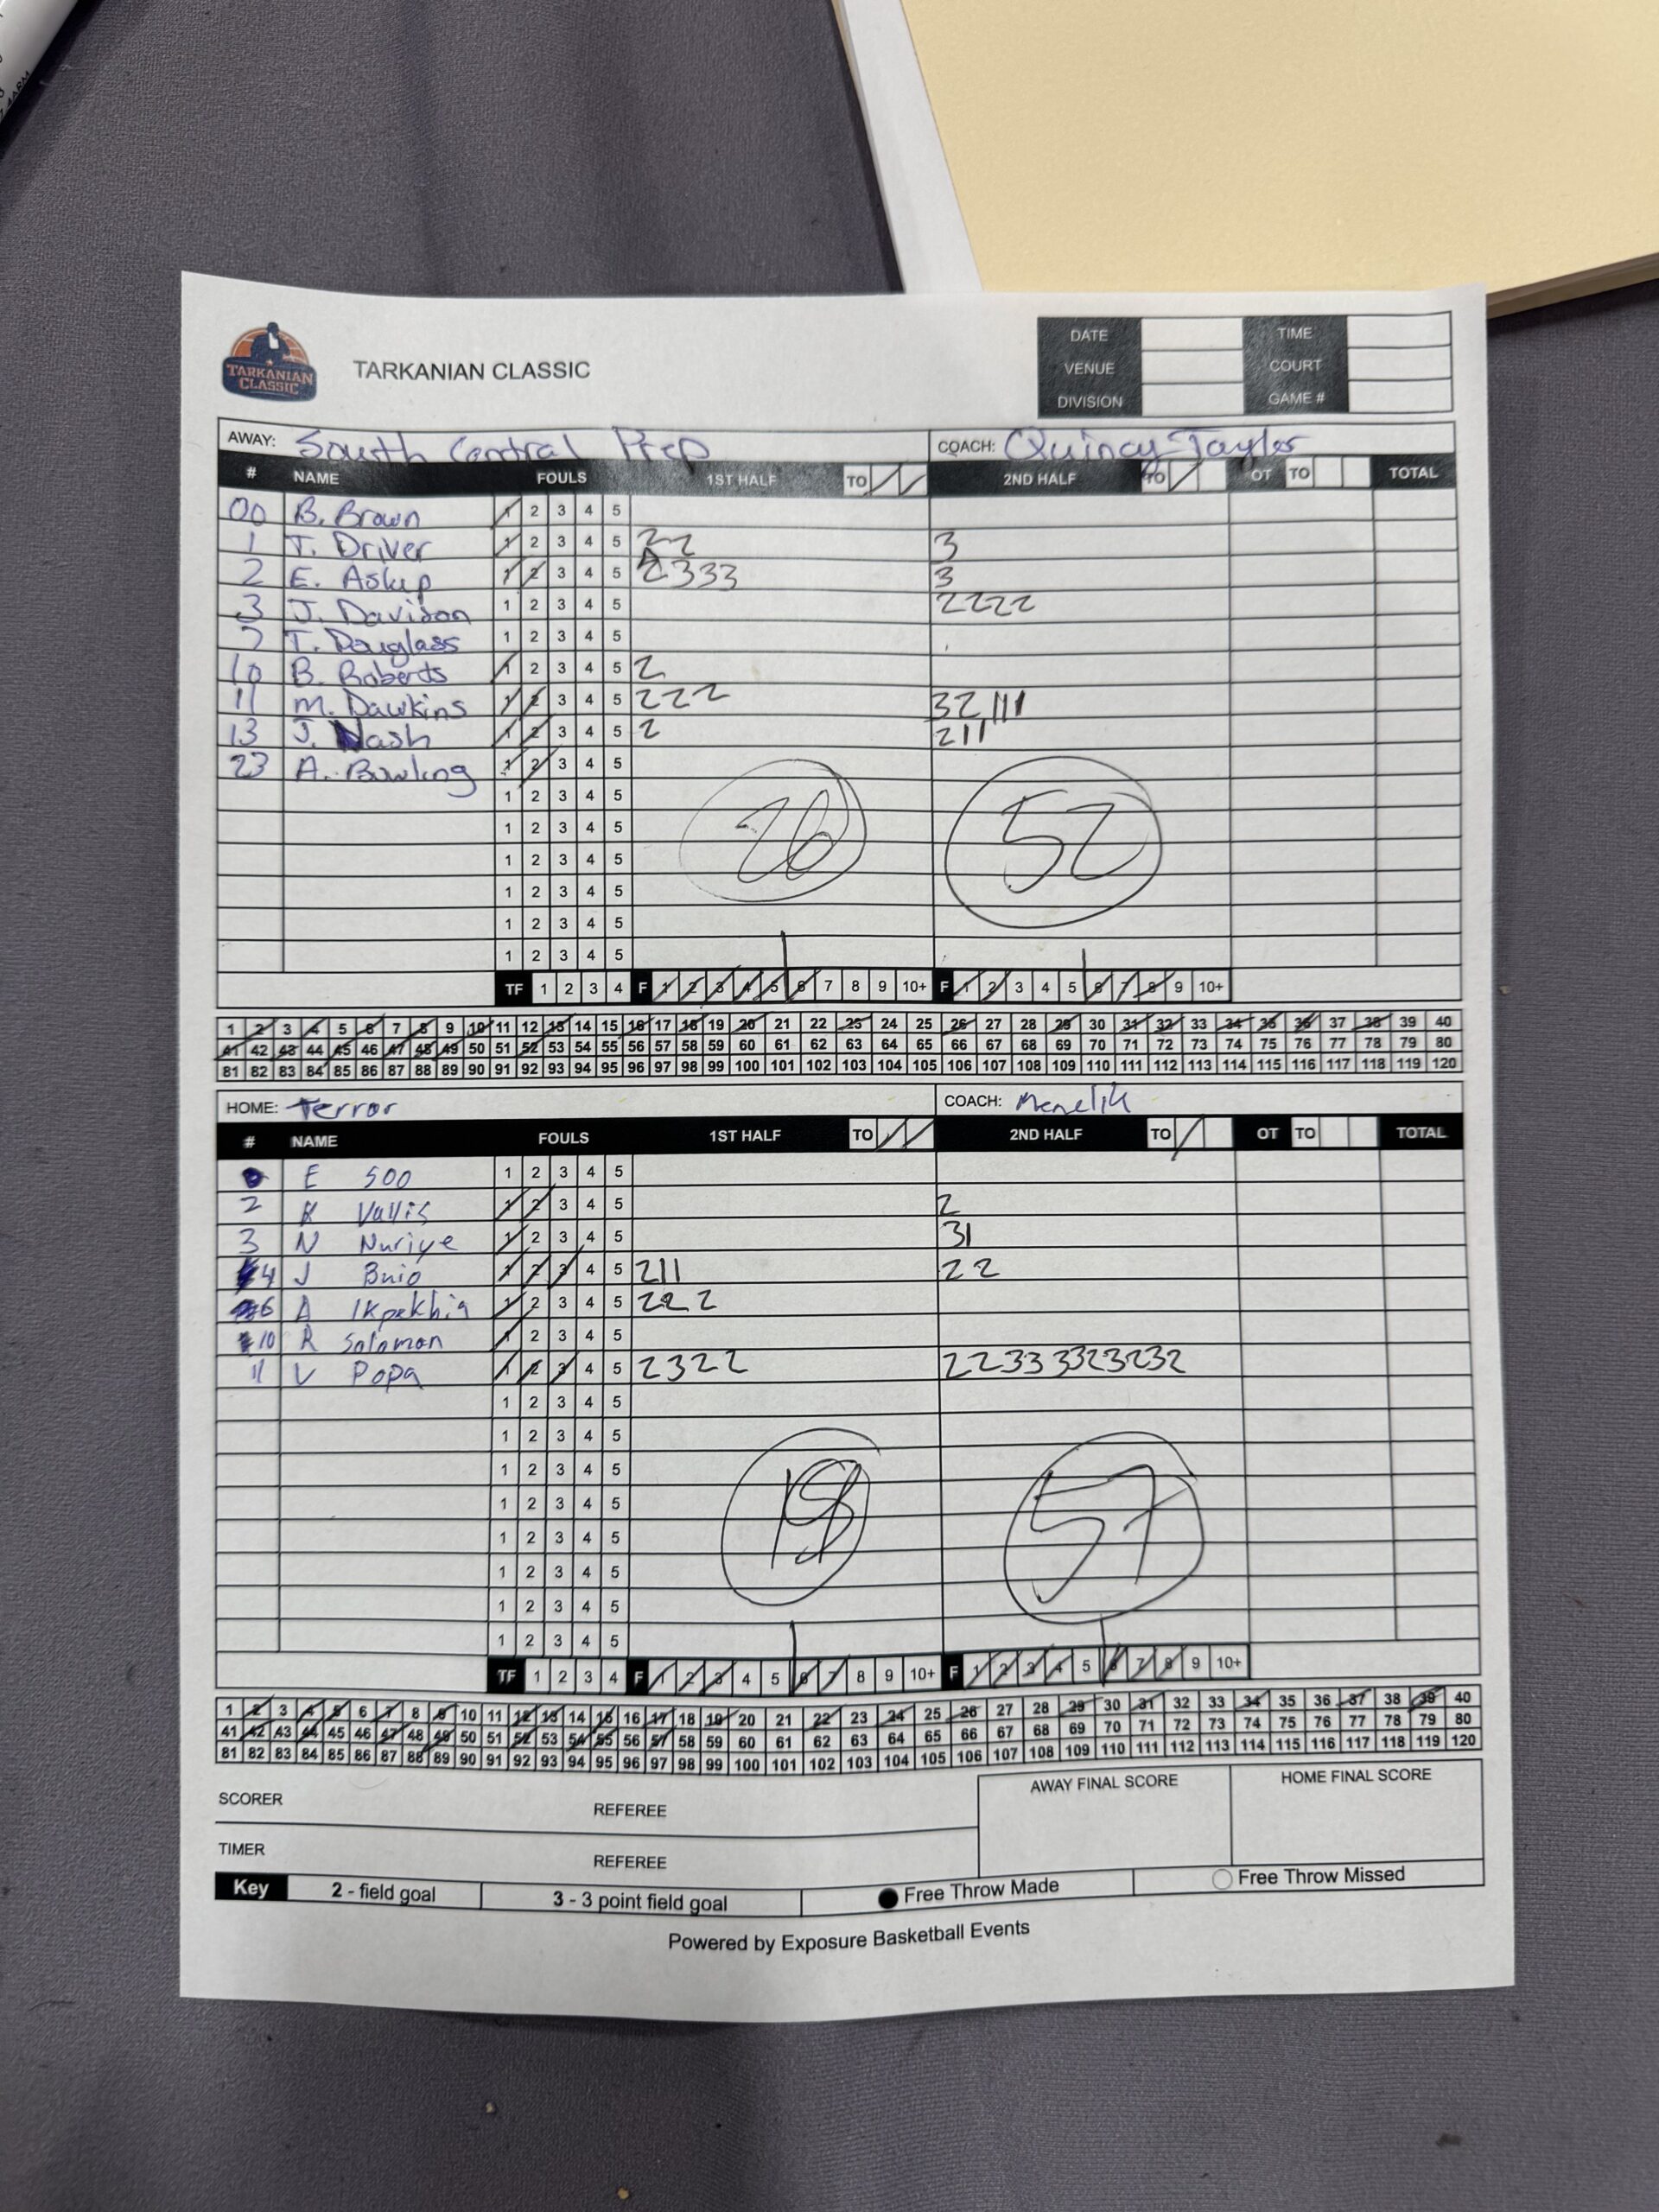 TARKANIAN CLASSIC
TARKANIAN CLASSIC
DATE TIME
VENUE COURT
DIVISION GAME #
AWAY: South Central Prep COACH: Quincy Taylor
# NAME FOULS 1ST HALF TO 2ND HALF TO OT TO TOTAL
00 B. Brown 1 2 3 4 5
1 T. Driver 1 2 3 4 5 22 3
2 E. Askip 1 2 3 4 5 2333 3
3 J. Davison 1 2 3 4 5 2222
7 T. Douglass 1 2 3 4 5
10 B. Roberts 1 2 3 4 5 2
11 M. Dawkins 1 2 3 4 5 222 32111
13 J. Nash 1 2 3 4 5 2 211
23 A. Bowling 1 2 3 4 5
1 2 3 4 5
1 2 3 4 5 26 52
1 2 3 4 5
1 2 3 4 5
1 2 3 4 5
1 2 3 4 5
TF 1 2 3 4 F 1 2 3 4 5 6 7 8 9 10+ F 1 2 3 4 5 6 7 8 9 10+
1 2 3 4 5 6 7 8 9 10 11 12 13 14 15 16 17 18 19 20 21 22 23 24 25 26 27 28 29 30 31 32 33 34 35 36 37 38 39 40
41 42 43 44 45 46 47 48 49 50 51 52 53 54 55 56 57 58 59 60 61 62 63 64 65 66 67 68 69 70 71 72 73 74 75 76 77 78 79 80
81 82 83 84 85 86 87 88 89 90 91 92 93 94 95 96 97 98 99 100 101 102 103 104 105 106 107 108 109 110 111 112 113 114 115 116 117 118 119 120
HOME: Terror COACH: Menelik
# NAME FOULS 1ST HALF TO 2ND HALF TO OT TO TOTAL
E Soo 1 2 3 4 5
2 K Vallis 1 2 3 4 5 2
3 N Nuriye 1 2 3 4 5 31
4 J Bnio 1 2 3 4 5 211 22
6 A Ikpekhia 1 2 3 4 5 222
10 R Solomon 1 2 3 4 5
11 V Popa 1 2 3 4 5 2322 22333323232
1 2 3 4 5
1 2 3 4 5
1 2 3 4 5
1 2 3 4 5 57
1 2 3 4 5
1 2 3 4 5
1 2 3 4 5
1 2 3 4 5
TF 1 2 3 4 F 1 2 3 4 5 6 7 8 9 10+ F 1 2 3 4 5 6 7 8 9 10+
1 2 3 4 5 6 7 8 9 10 11 12 13 14 15 16 17 18 19 20 21 22 23 24 25 26 27 28 29 30 31 32 33 34 35 36 37 38 39 40
41 42 43 44 45 46 47 48 49 50 51 52 53 54 55 56 57 58 59 60 61 62 63 64 65 66 67 68 69 70 71 72 73 74 75 76 77 78 79 80
81 82 83 84 85 86 87 88 89 90 91 92 93 94 95 96 97 98 99 100 101 102 103 104 105 106 107 108 109 110 111 112 113 114 115 116 117 118 119 120
SCORER REFEREE AWAY FINAL SCORE HOME FINAL SCORE
TIMER REFEREE
Key 2 - field goal 3 - 3 point field goal Free Throw Made Free Throw Missed
Powered by Exposure Basketball Events